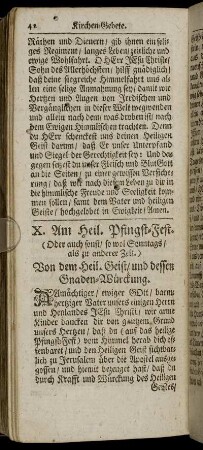 42 Kirchen-Gebete.
Räthen und Dienern, gib ihnen ein seli-
ges Regiment, langes Leben, zeitliche und
ewige Wohlfahrt. O HErr JEsu Christe,
Sohn des Allerhöchsten, hilff gnädiglich,
daß deine siegreiche Himmelfahrt uns al-
len eine selige Anmahnung sey, damit wir
Hertzen und Augen von Irdischen und
Vergänglichen in dieser Welt wegwenden
und allein nach dem was droben ist, nach
dem Ewigen Himmlischen trachten. Denn
du HErr schenckest uns deinen Heiligen
Geist darum, daß Er unser Unterpfand
und Siegel der Gerechtigkeit sey: Und du
gegen setzest du unser Fleisch und Blut GOtt
an die Seiten, zu einer gewissen Versiche-
rung, daß wir nach diesem Leben zu dir in
die himmlische Freude und Seeligkeit kom-
men sollen, samt dem Vater und heiligen
Geiste, hochgelobet in Ewigkeit, Amen.
X. Am Heil. Pfingst-Fest.
(Oder auch sonst, so wol Sonntags,
als zu anderer Zeit.)
Von dem Heil. Geist, und dessen
Gnaden-Würckung.
Allmächtiger, ewiger GOtt, barm-
hertziger Vater unsers einigen Herrn
und Heylandes JEsu Christi, wir arme
Kinder dancken dir von gantzem Grund
unsers Hertzens, daß du (auf das heilige
Pfingst-Fest) vom Himmel herab dich of-
fenbaret, und den Heiligen Geist sichtbar-
lich zu Jerusalem über die Apostel ausge-
gossen, und hiemit bezeuget hast, daß du
durch Krafft und Würckung des Heiligen
Geistes,